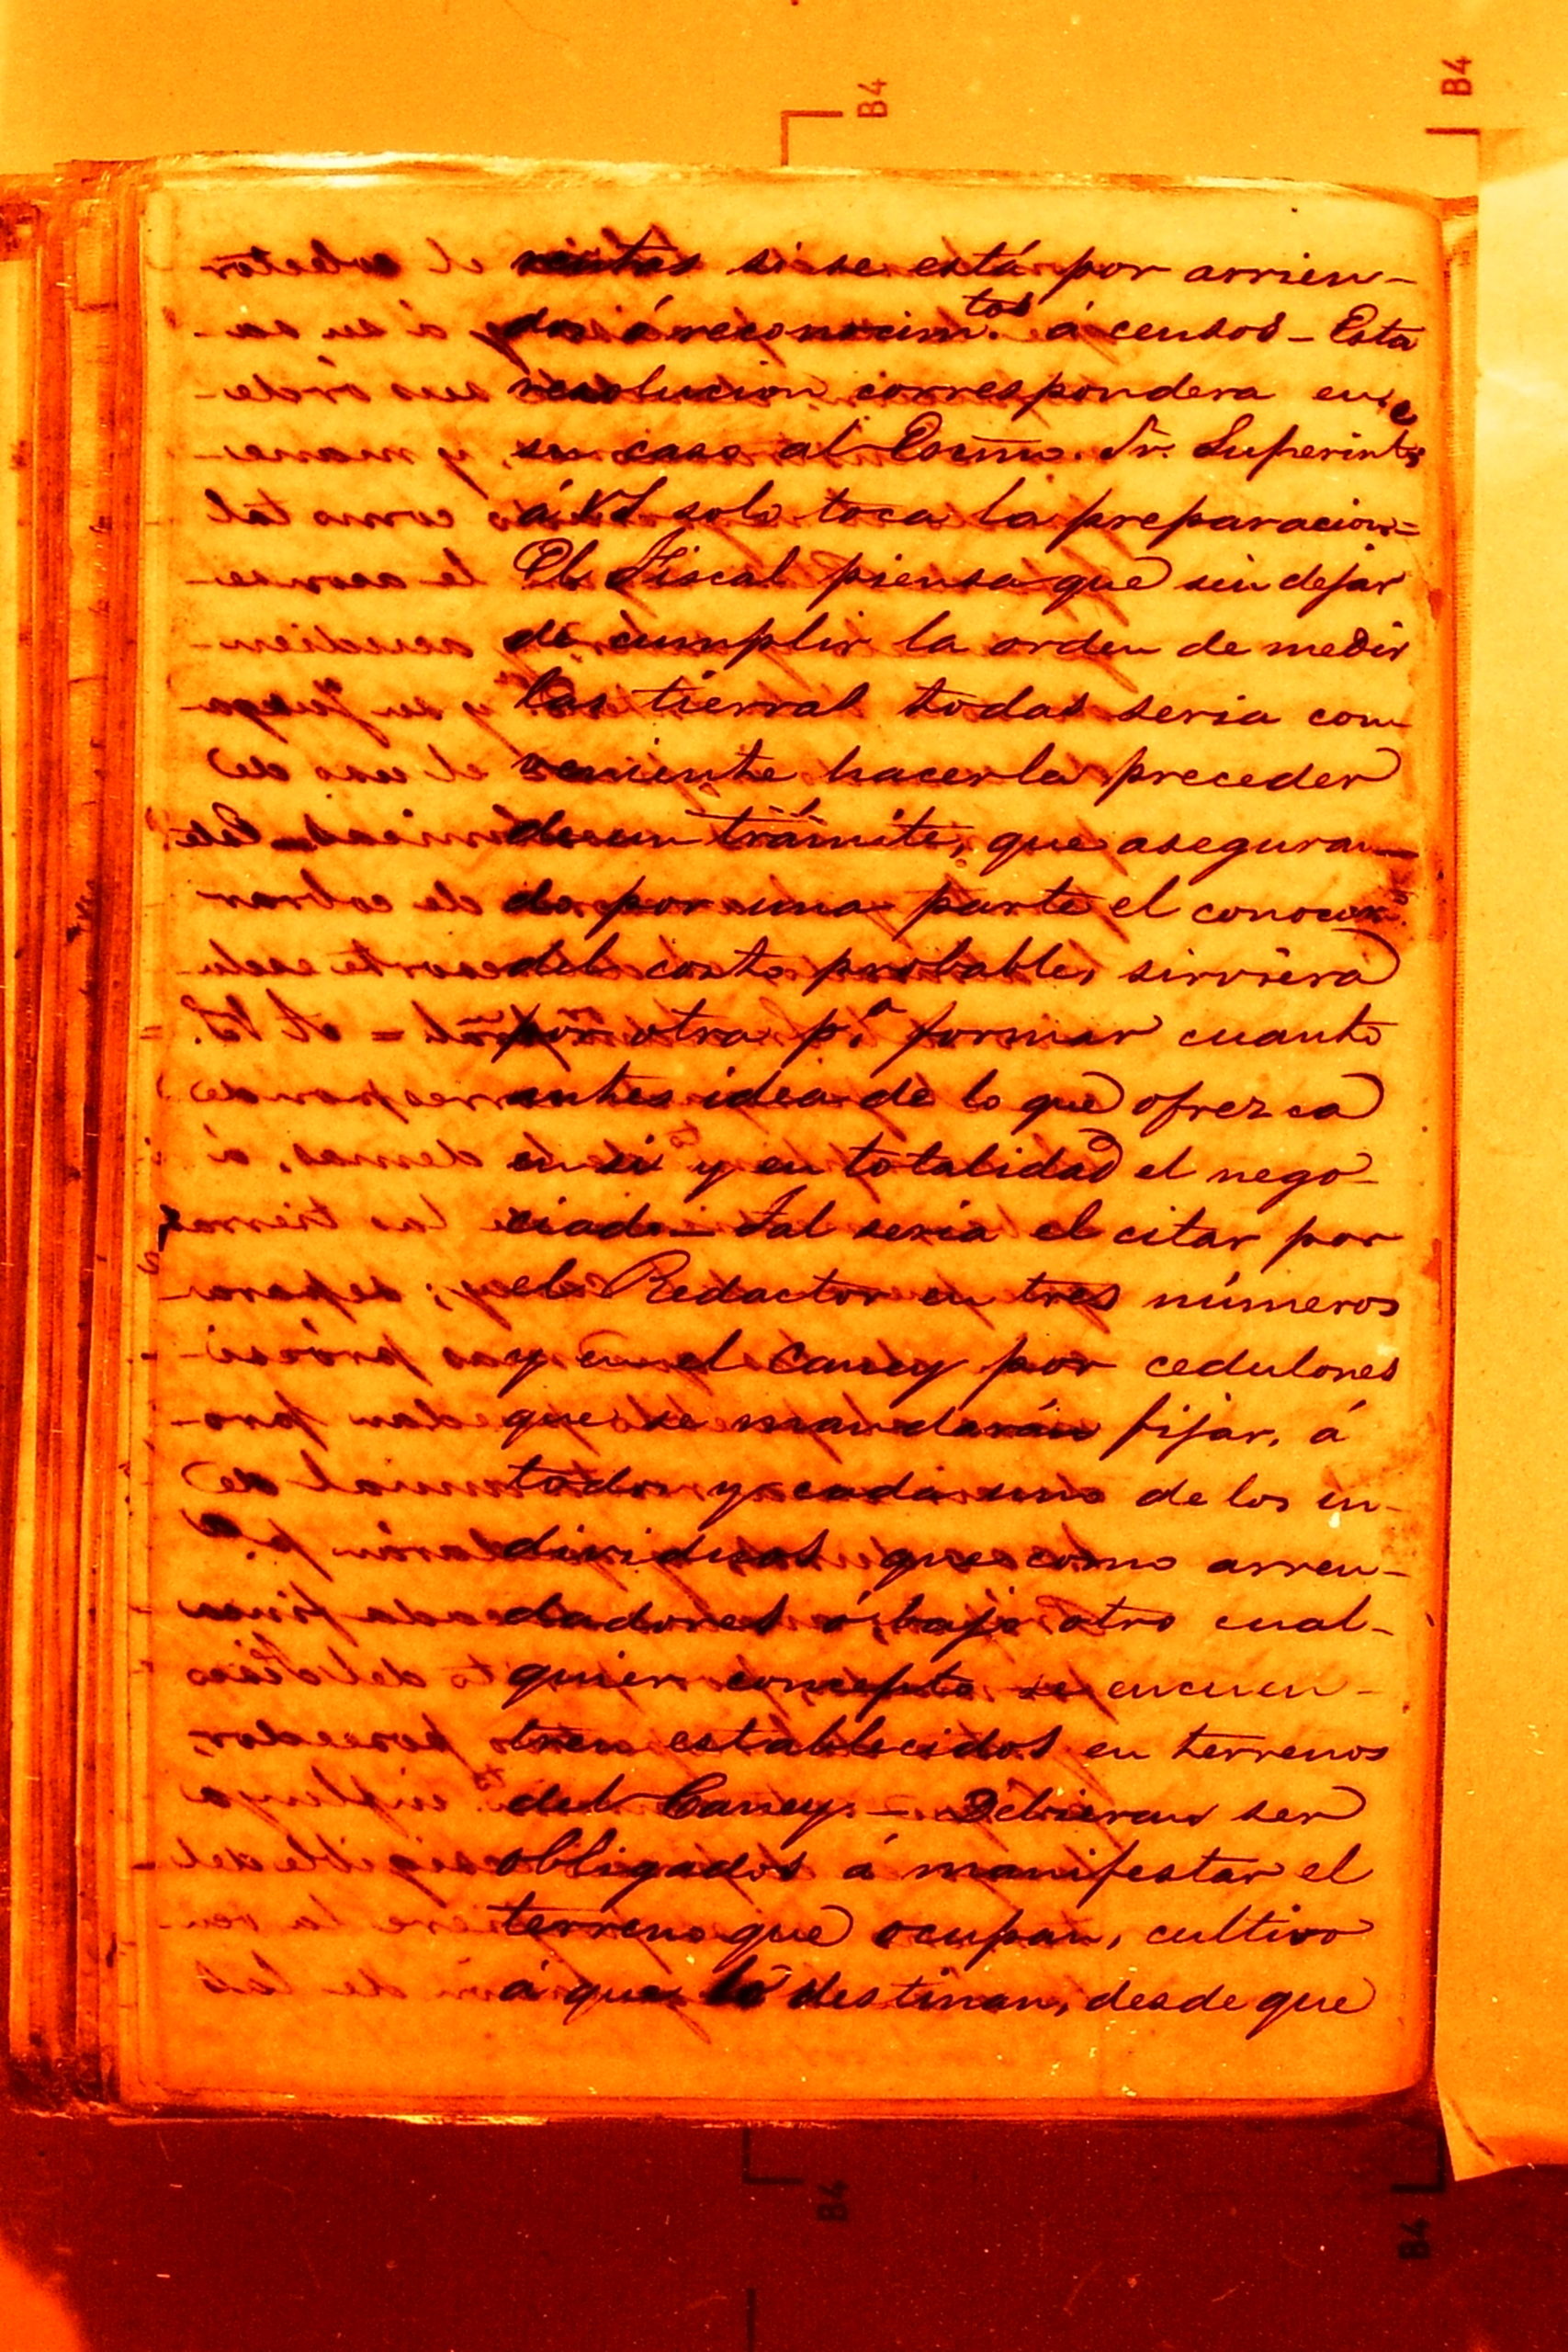 B4
B4
ventas si se está por arrien-
dos ó reconocim.tos á censos - Esta
resolucion correspondera en
su caso al Escmo. Sr. Superint.e
á VS solo toca la preparacion=
El Fiscal piensa que sin dejar
de cumplir la orden de medir
las tierras todas seria con
veniente hacerla preceder
de un trámite, que aseguran-
do por una parte el conocim.to
del costo probable, sirviera
por otra p.a formar cuanto
antes idea de lo que ofrezca
en si y en totalidad el nego-
ciado - Tal seria el citar por
el Redactor en tres números
y en el Caney por cedulones
que se mandarán fijar, á
todos y cada uno de los in-
dividuos que como arren-
dadores ó bajo otro cual-
quier concepto se encuen-
tren establecidos en terrenos
del Caney. - Debieran ser
obligados á manifestar el
terreno que ocupan, cultivo
á que lo destinan, desde que
B4
B4